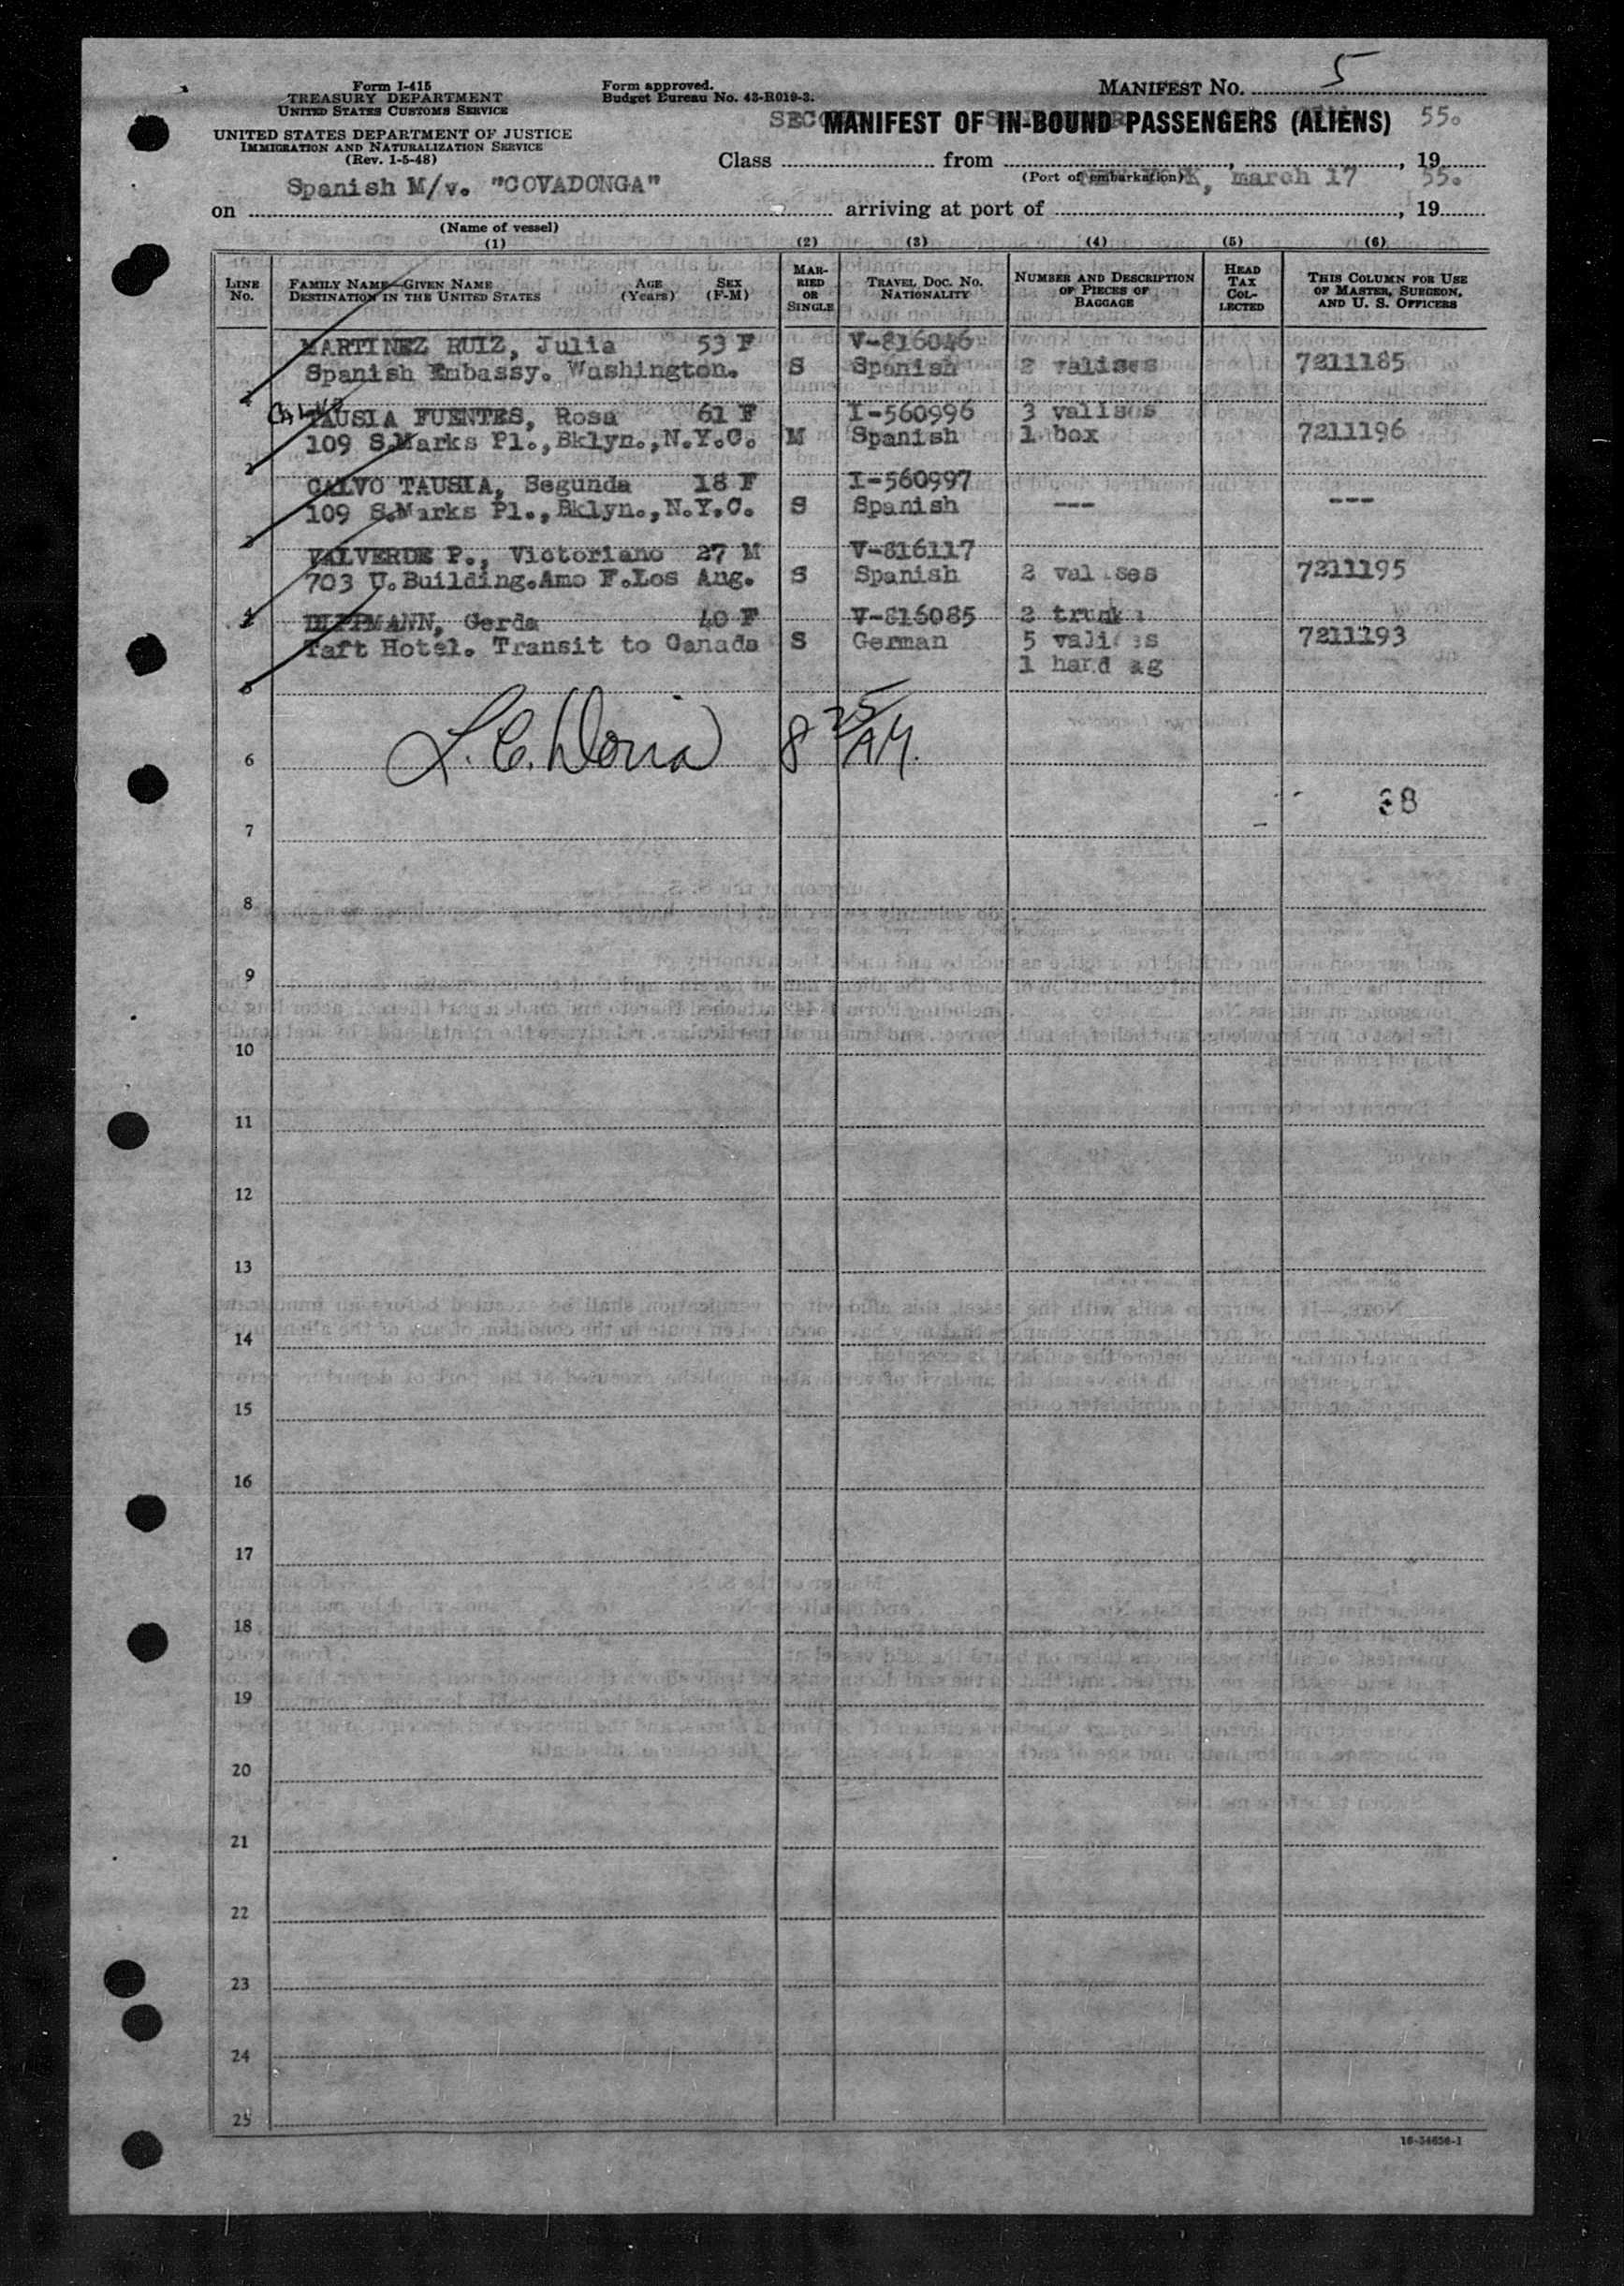 Form I-415
TREASURY DEPARTMENT
UNITED STATES CUSTOMS SERVICE
UNITED STATES DEPARTMENT OF JUSTICE
IMMIGRATION AND NATURALIZATION SERVICE
(Rev. 1-5-48)
Form approved.
Budget Bureau No. 43-R019-3.
MANIFEST No. 5
MANIFEST OF IN-BOUND PASSENGERS (ALIENS) 55.
Class from , , 19
(Port of embarkation) march 17 55.
Spanish M/v. "COVADONGA"
on arriving at port of , 19
(Name of vessel)
(1) (2) (3) (4) (5) (6)
LINE No. FAMILY NAME—GIVEN NAME DESTINATION IN THE UNITED STATES AGE (Years) SEX (F-M) MARRIED OR SINGLE TRAVEL DOC. NO. NATIONALITY NUMBER AND DESCRIPTION OF PIECES OF BAGGAGE HEAD TAX COLLECTED THIS COLUMN FOR USE OF MASTER, SURGEON, AND U. S. OFFICERS
MARTINEZ RUIZ, Julia 53 F V-816046
Spanish Embassy. Washington. S Spanish 2 valises 7211185
1
TAUSIA FUENTES, Rosa 61 F I-560996 3 valises
109 S.Marks Pl.,Bklyn.,N.Y.C. M Spanish 1 box 7211196
2
CALVO TAUSIA, Segunda 18 F I-560997
109 S.Marks Pl.,Bklyn.,N.Y.C. S Spanish --- ---
3
VALVERDE P., Victoriano 27 M V-816117
703 U.Building.Amo F.Los Ang. S Spanish 2 valises 7211195
4
Gerda 40 F V-816085 2 trunk
Taft Hotel. Transit to Canada S German 5 valises 7211193
1 hand bag
5
L.C. Doria 8 25/AM.
6
38
7
8
9
10
11
12
13
14
15
16
17
18
19
20
21
22
23
24
25
16-54656-1